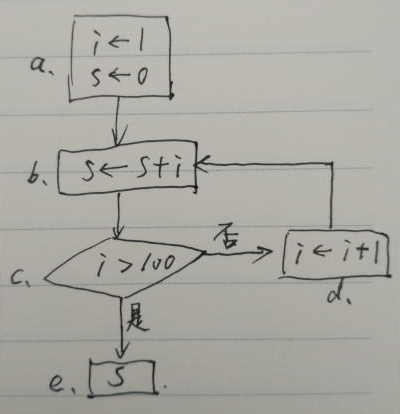 a.
i ← 1
s ← 0
b.
s ← s+i
c.
i > 100
否
i ← i+1
d.
是
e.
s